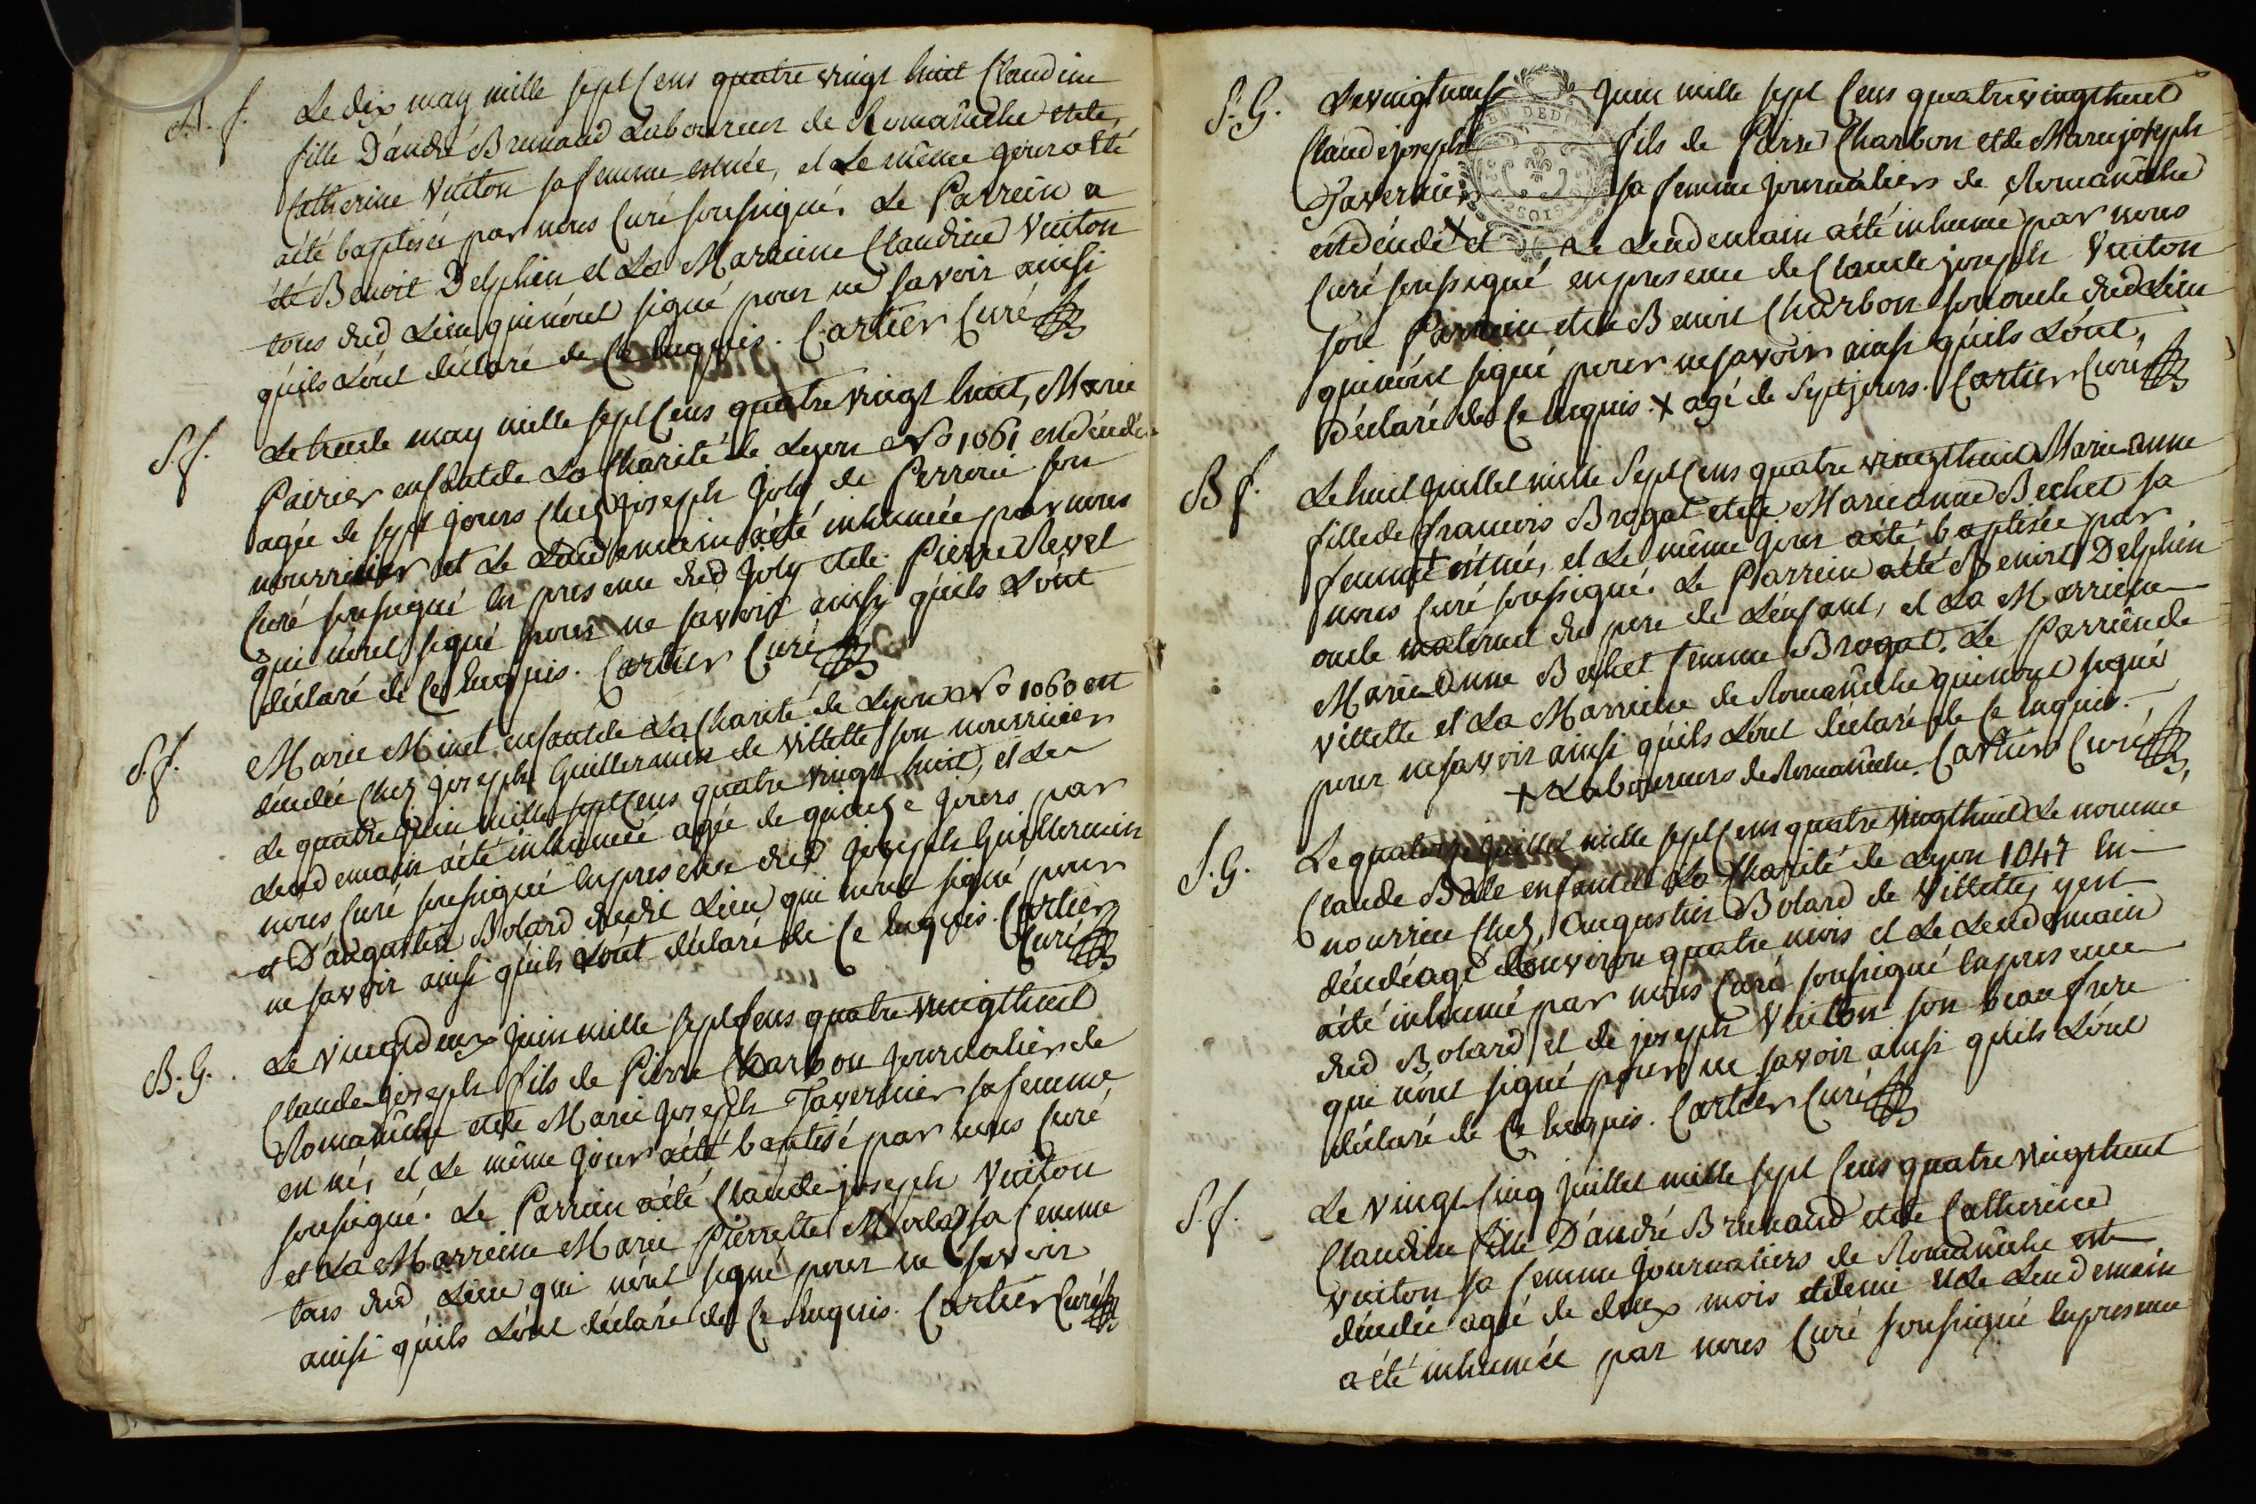 B. f. Le dix may mille sept Cens quatre vingt huit Claudine
fille D'andré Brunaud Laboureur de Romanèche et de
Catherine Vuiton sa femme est née, et Le même jour a été
a été baptisée par nous Curé soussigné. Le Parrein a
été Benoit Delphin et La Marreine Claudine Vuiton
tous dud Lieu qui n'ont signé pour ne savoir ainsi
qu'ils L'ont déclaré de Ce Enquis. Cartier Curé
S f. Le trente may mille sept Cens quatre vingt huit, Marie
Poirier enfant de La Charité de Lyon No 1061 est décédée
agée de sept jours Chez joseph joly de Perroux son
nourricier et Le Lendemain a été inhumée par nous
Curé soussigné En presence dud joly et de Pierre Revel
qui n'ont signé pour ne savoir ainsy qu'ils L'ont
déclaré de Ce Enquis. Cartier Curé
S. f. Marie Minet enfant de La Charité de Lyon No 1060 est
décédée Chez joseph Guillermin de Villette son nourricier
Le quatre juin mille sept Cens quatre vingt huit, et Le
Lendemain a été inhumée agée de quinze jours par
nous Curé soussigné En presence dud joseph Guillermin
et D'augustin Bolard dudit Lieu qui n'ont signé pour
ne savoir ainsi qu'ils L'ont déclaré de Ce Enquis. Cartier
Curé
B. G. Le vingt deux juin mille sept Cens quatre vingt huit
Claude joseph fils de Pierre Charbon journalier de
Romanèche et de Marie joseph Tavernier sa femme
est né, et Le même jour a été baptisé par nous Curé
soussigné. Le Parrein a été Claude joseph Vuiton
et La Marreine Marie Pierrette sa femme
tous dud Lieu qui n'ont signé pour ne savoir
ainsi qu'ils L'ont déclaré de Ce Enquis. Cartier Curé
S. G. Le vingt neuf juin mille sept Cens quatre vingt huit
Claude joseph fils de Pierre Charbon et de Marie joseph
Tavernier sa femme journaliers de Romanèche
est décédé + et Le Lendemain a été inhumé par nous
Curé soussigné en presence de Claude joseph Vuiton
son Parrein et de Benoit Charbon son oncle dud Lieu
qui n'ont signé pour ne savoir ainsi qu'ils L'ont
déclaré de Ce Enquis. + agé de sept jours. Cartier Curé
B f. Le huit juillet mille Sept Cens quatre vingt huit Marie anne
fille de francois Brogat et de Marie anne Bechet sa
femme + est née, et Le même jour a été baptisée par
nous Curé soussigné. Le Parrein a été Benoit Delphin
oncle maternel du pere de L'enfant, et La Marreine
Marie Anne Bechet femme Brogat. Le Parrein de
Villette et La Marreine de Romanèche qui n'ont signé
pour ne savoir ainsi qu'ils L'ont déclaré de Ce Enquis.
+ Laboureurs de Romanèche. Cartier Curé
S. G. Le quatorze juillet mille sept Cens quatre vingt huit Le nommé
Claude enfant de La Charité de Lyon 1047 En
nourrice Chez Augustin Bolard de Villette, y est
décédé agé d'environ quatre mois et Le Lendemain
a été inhumé par nous Curé soussigné En presence
dud Bolard et de joseph Vuiton son beau frere
qui n'ont signé pour ne savoir ainsi qu'ils L'ont
déclaré de Ce Enquis. Cartier Curé
S. f. Le vingt Cinq juillet mille sept Cens quatre vingt huit
Claudine fille D'andré Brunaud et de Catherine
Vuiton sa femme journaliers de Romanèche est
décédée agée de deux mois et demi et Le Lendemain
a été inhumée par nous Curé soussigné En presence